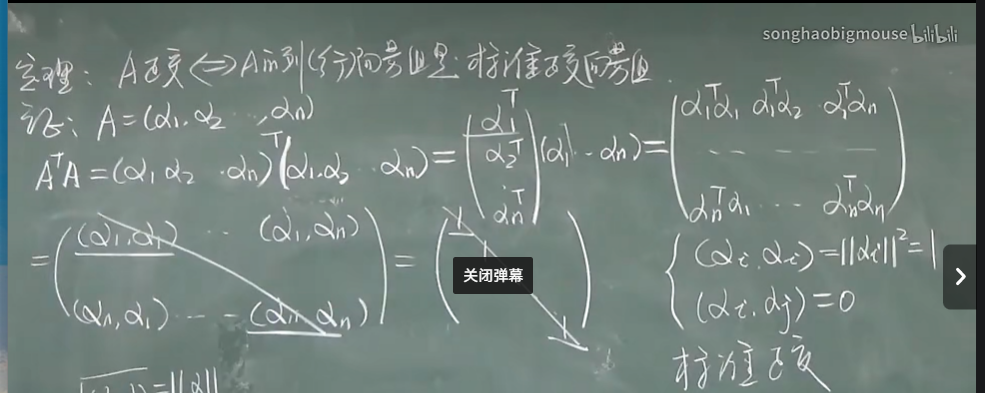 songhaobigmouse bilibili
定理: A正交⟺A的列(行)向量组是标准正交向量组.
证: A=(α₁,α₂ ⋯,αₙ)
AᵀA=(α₁ α₂ ⋯αₙ)ᵀ(α₁,α₂ ⋯ αₙ)=(α₁ᵀ α₂ᵀ ⋮ αₙᵀ)(α₁ ⋯ αₙ)=(α₁ᵀα₁ α₁ᵀα₂ ⋯ α₁ᵀαₙ
- - - - - -
αₙᵀα₁ ⋯ αₙᵀαₙ)
=((α₁,α₁) ⋯ (α₁,αₙ)
(αₙ,α₁) ⋯ (αₙ,αₙ))=(1 1 1)
{(αᵢ,αᵢ)=||αᵢ||²=1
(αᵢ,αⱼ)=0
标准正交
关闭弹幕
=||α||